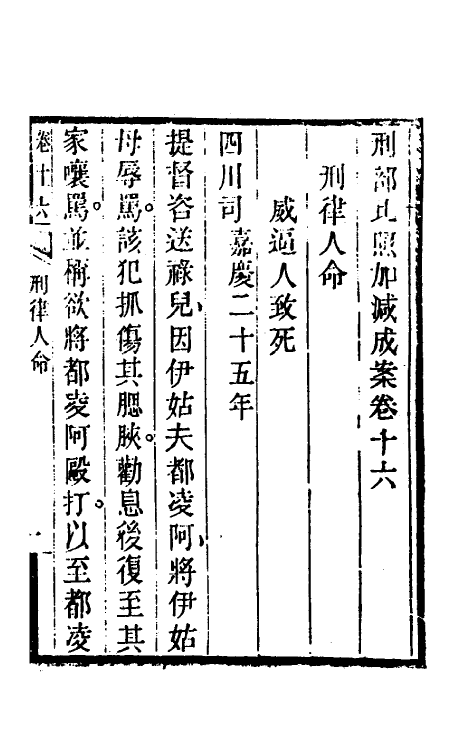 刑部比照加減成案卷十六
刑律人命
威逼人致死
四川司 嘉慶二十五年
提督咨送祿兒因伊姑夫都凌阿將伊姑
母辱罵。該犯抓傷其腮脥。勸息後復至其
家嚷罵。並稱欲將都凌阿毆打。以至都凌
卷十六 刑律人命 一